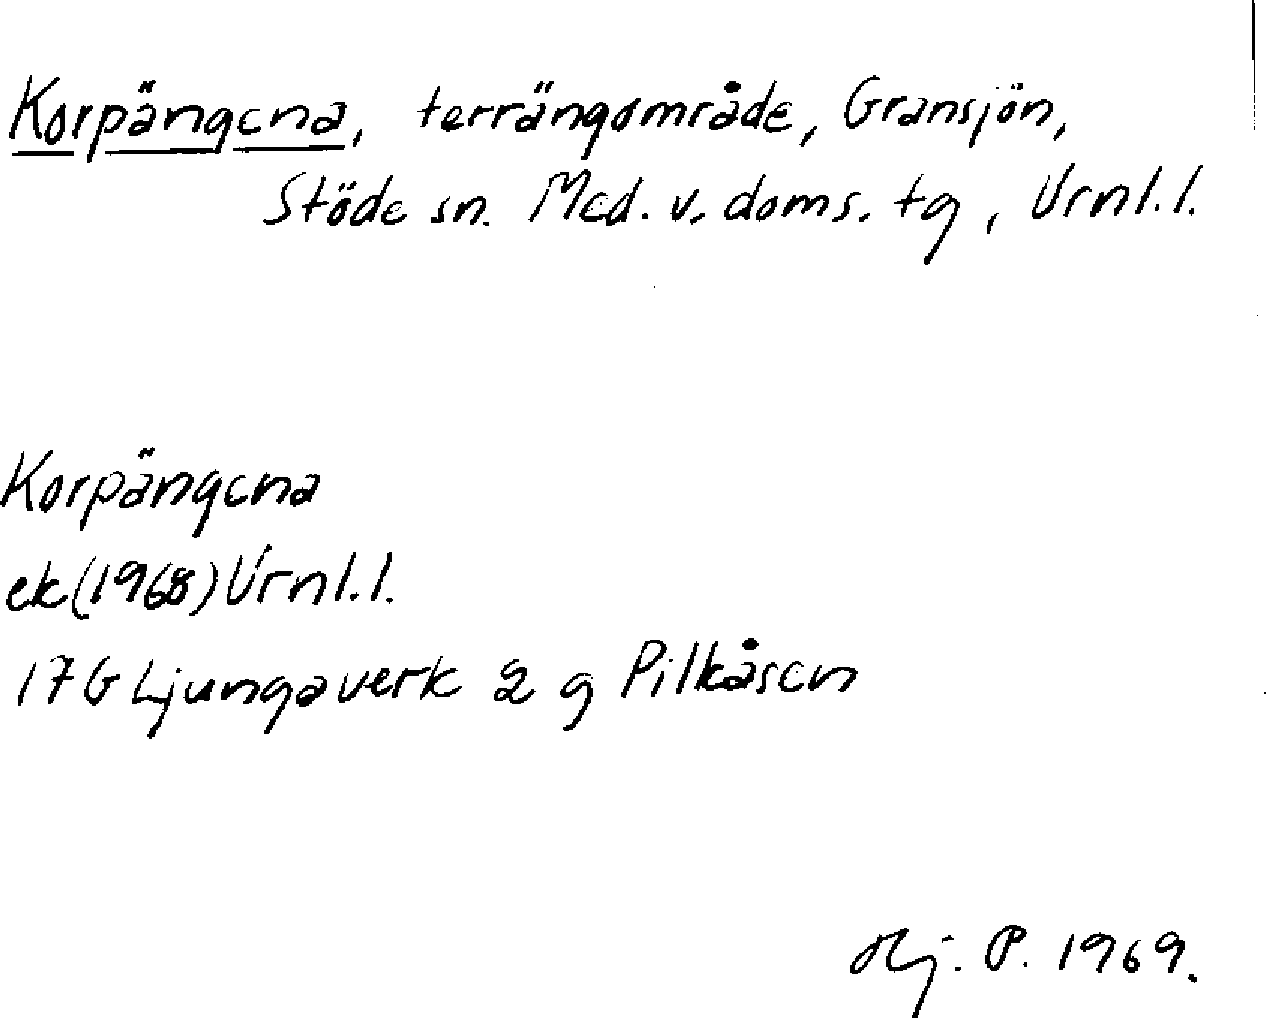 Korpängena, terrängområde, Gransjön,
Stöde sn. Med. v. doms. tg, Vrnl. l.
Korpängena
ek (1968) Vrnl. l.
17G Ljungaverk 2 g Pilkåsen
P. 1969.